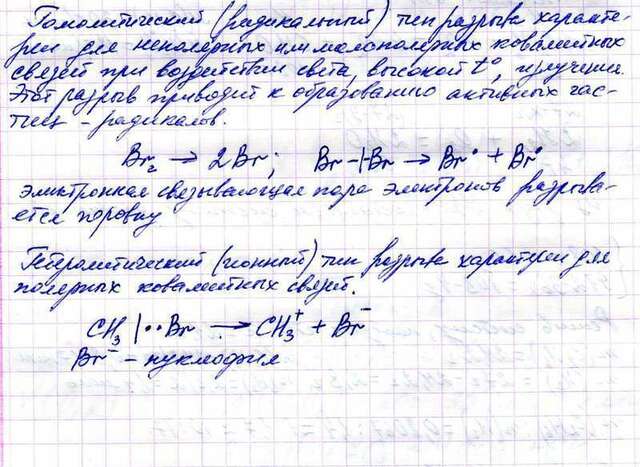 Гомолитический (радикальный) тип разрыва характе-
рен для неполярных или малополярных ковалентных
связей при воздействии света, высокой t°, излучения.
Этот разрыв приводит к образованию активных час-
тиц - радикалов.
Br₂ → 2Br; Br-|-Br → Br• + Br•
электронная связывающая пара электронов разрыва-
ется поровну
Гетеролитический (ионный) тип разрыва характерен для
полярных ковалентных связей.
CH₃ |••Br → CH₃⁺ + Br⁻
Br⁻ - нуклофил